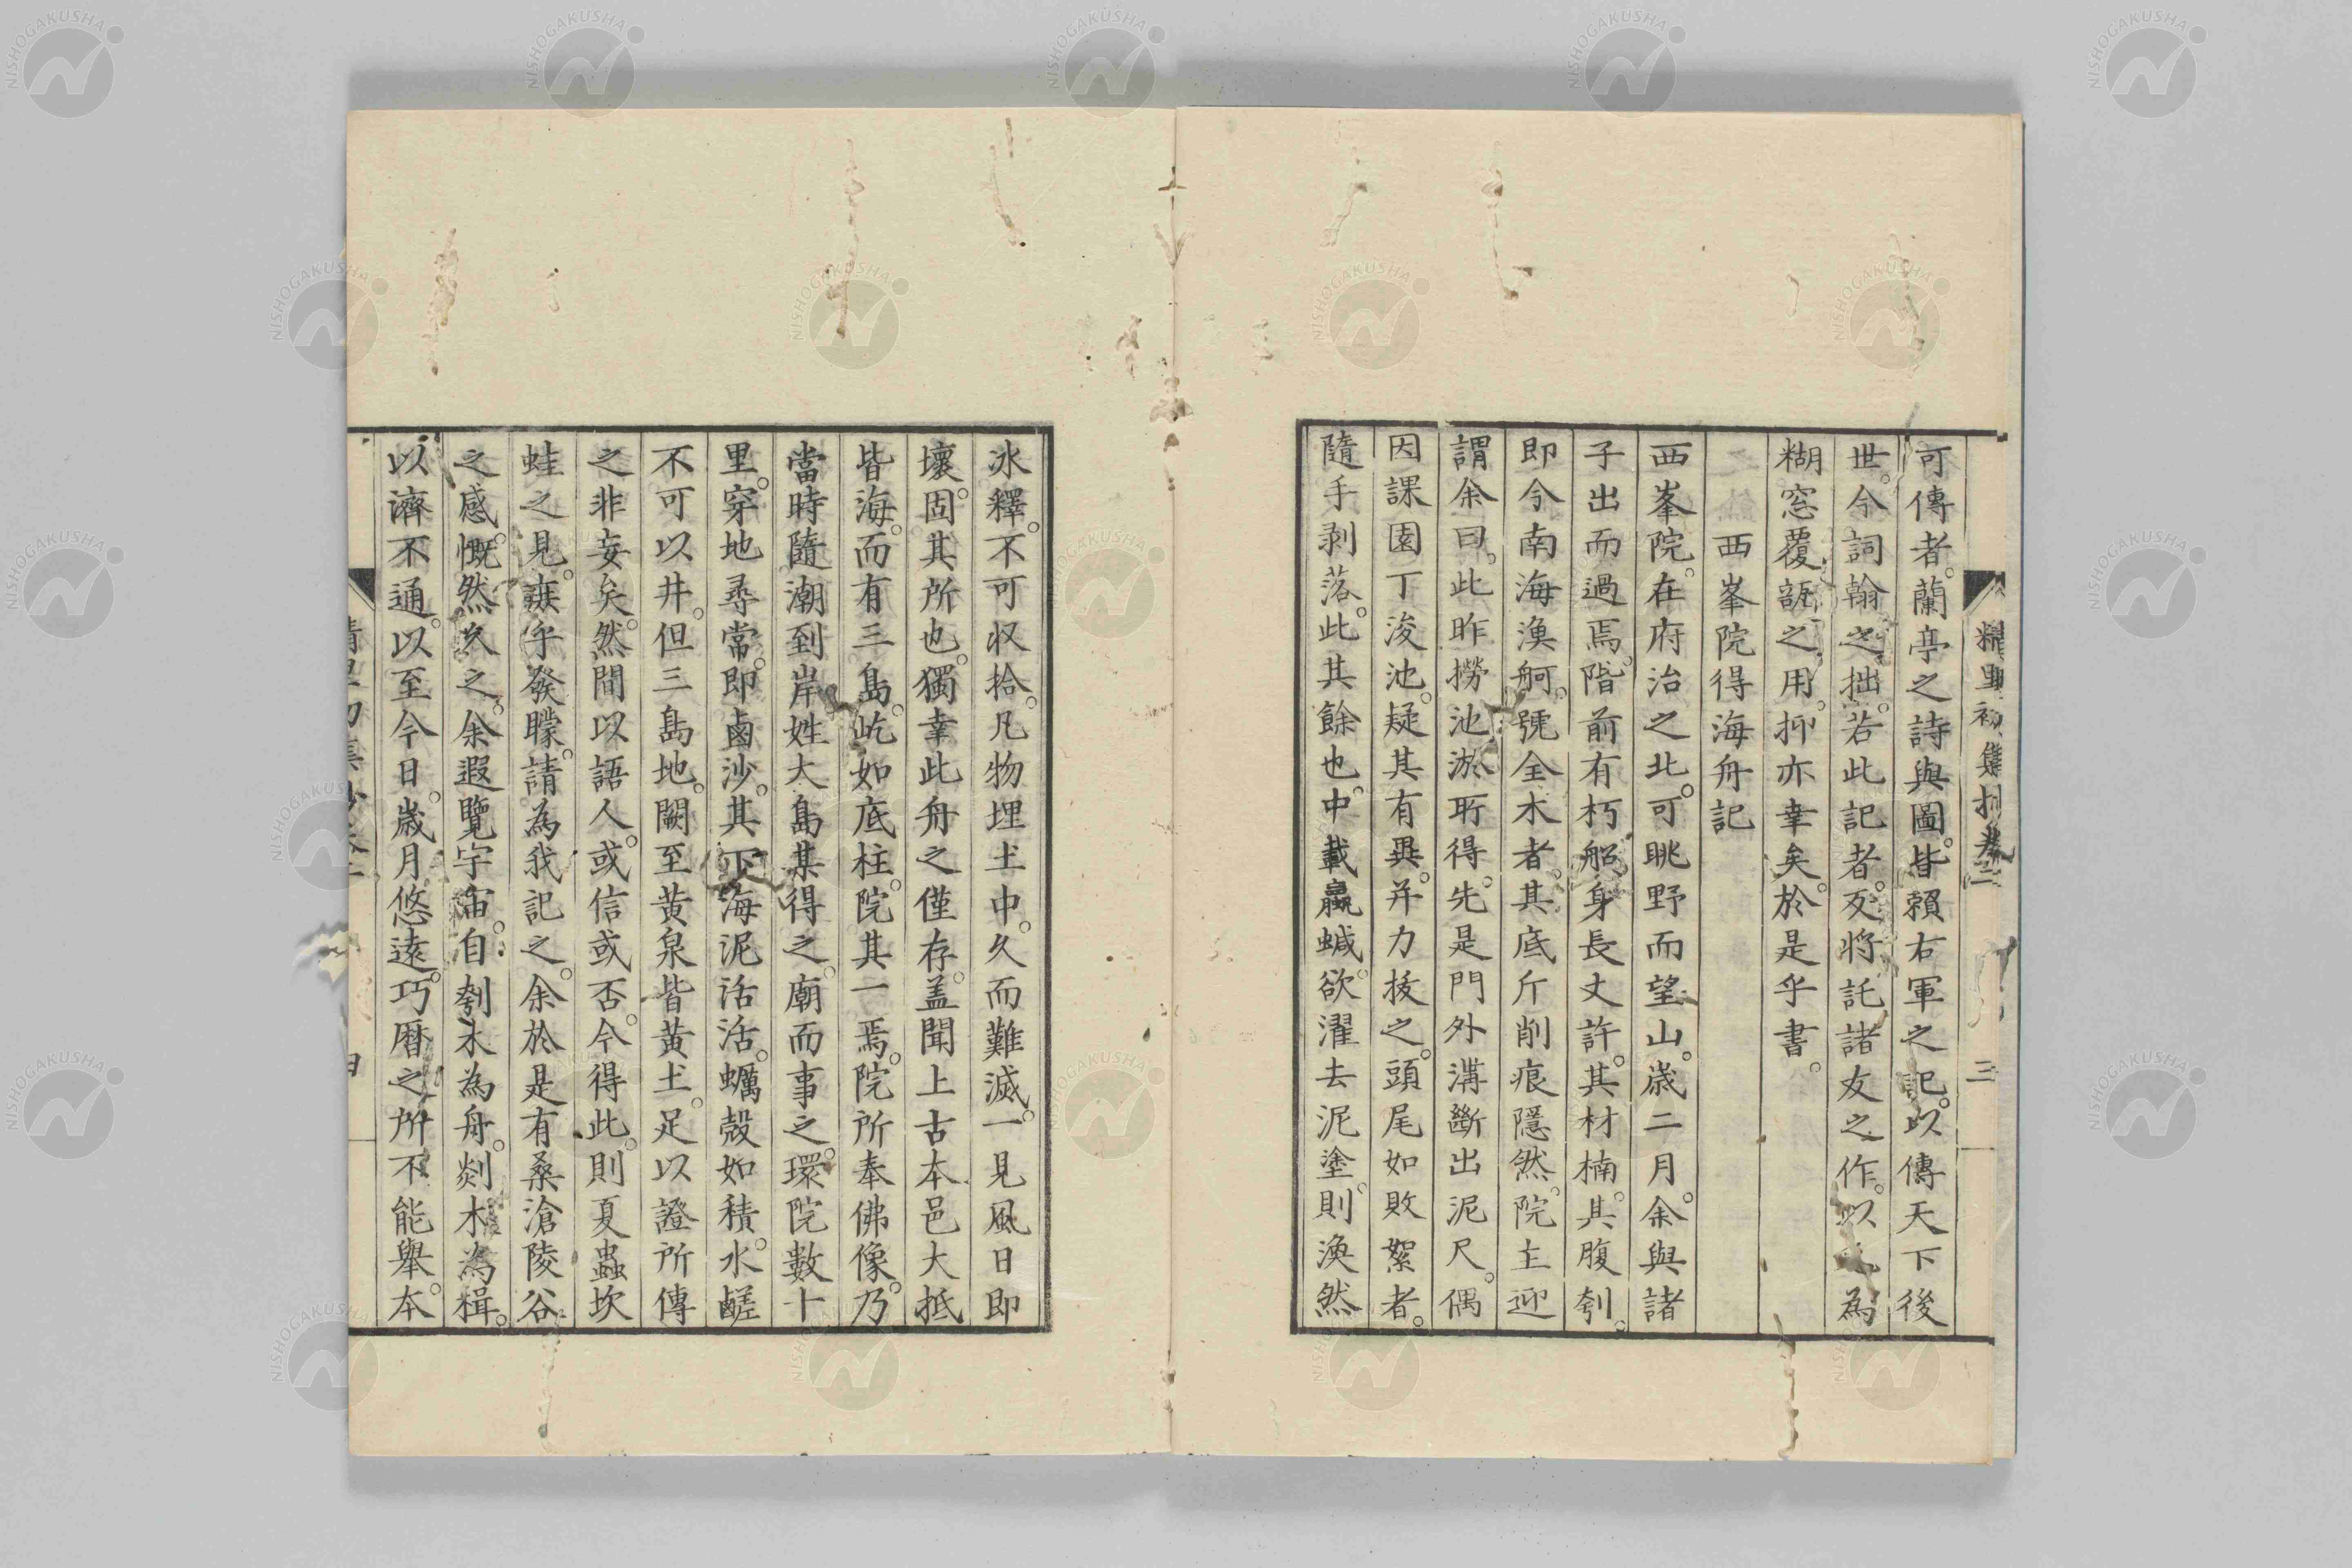 精里初集抄卷二 三
可傳者。蘭亭之詩與圖。皆賴右軍之記。以傳天下後
世。今詞翰之拙。若此記者。叐将託諸友之作。以為
糊窓覆瓿之用。抑亦幸矣。於是乎書。
西峯院得海舟記
西峯院。在府治之北。可眺野而望山。歳二月。余與諸
子出而過焉。階前有朽船。身長丈許。其材楠。其腹刳。
即今南海漁舸。號全木者。其底斤削痕隱然。院主迎
謂余曰。此昨撈池淤所得。先是門外溝斷出泥尺。偶
因課園丁浚池。疑其有異。并力拔之。頭尾如敗絮者。
隨手剥落。此其餘也。中載蠃蝛。欲濯去泥塗。則渙然
氷釋。不可収拾。凡物埋土中。久而難滅。一見風日即
壞。固其所也。獨幸此舟之僅存。盖聞上古本邑大抵
皆海。而有三島。屹如底柱。院其一焉。院所奉佛像。乃
當時隨潮到岸姓大島某得之。廟而事之。環院數十
里。穿地尋常。即鹵沙。其下海泥活活。蠣殼如積。水鹺
不可以井。但三島地。闕至黄泉皆黄土。足以證所傳
之非妄矣。然間以語人。或信或否。今得此。則夏蟲坎
蛙之見。庶乎發矇。請為我記之。余於是有桑滄陵谷
之感。慨然久之。余遐覽宇宙。自刳木為舟。剡木為楫。
以濟不通。以至今日。歳月悠遠。巧暦之所不能舉。本